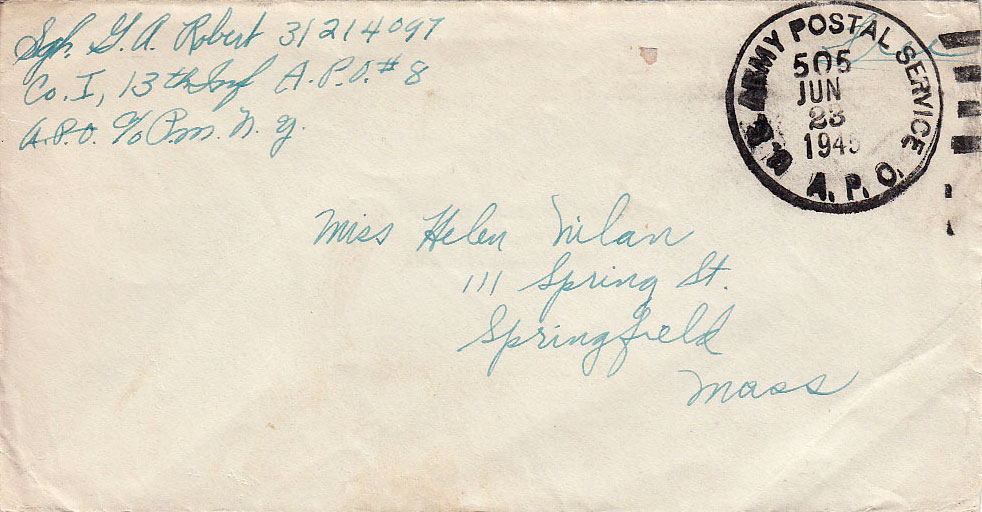 Sgt. G. A. Robert 31214097
Co. I, 13th Inf A.P.O. #8
A.P.O. c/o P.m. N.Y.
U.S. ARMY POSTAL SERVICE
Free
505
JUN
23
1945
A.P.O.
Miss Helen Nilan
111 Spring St.
Springfield
Mass